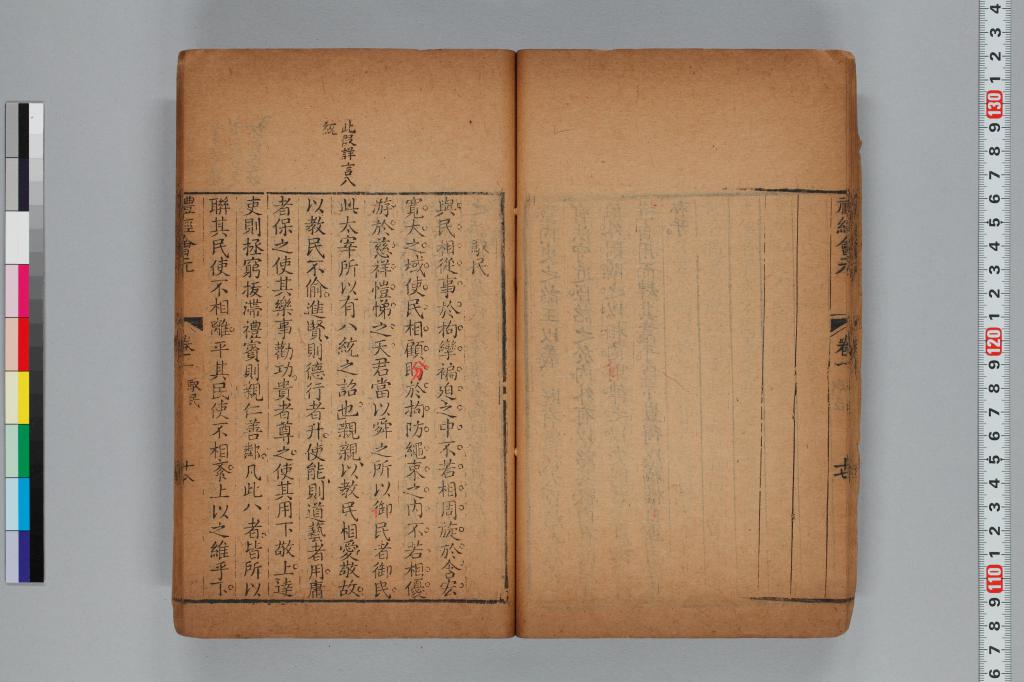 禮經會元
卷一
十七
馭民
與民相從事於拘攣褊迫之中不若相周旋於含宏
寬大之域使民相顧盼於拘防繩束之內不若相優
游於慈祥愷悌之天君當以舜之所以御民者御民
此太宰所以有八統之詔也親親以教民相愛敬故
以教民不偷進賢則德行者升使能則道藝者用庸
者保之使其樂事勸功貴者尊之使其用下敬上達
吏則拯窮拔滯禮賓則親仁善鄰凡此八者皆所以
聨其民使不相離平其民使不相紊上以之維乎下
此段詳言八
統
禮經會元
卷一
馭民
十八